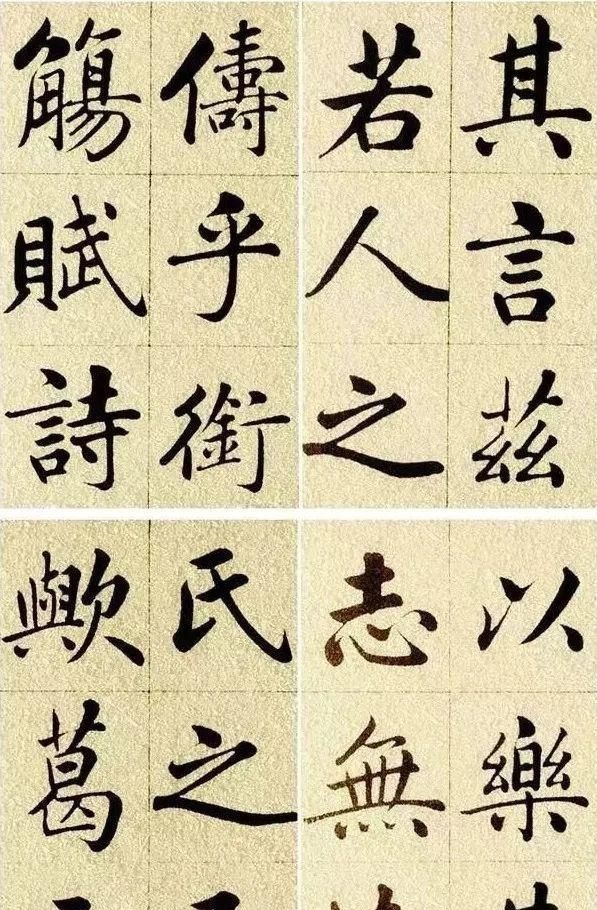 其言茲
若人之
儔乎銜
觴賦詩
以樂
志無
氏之
歟葛